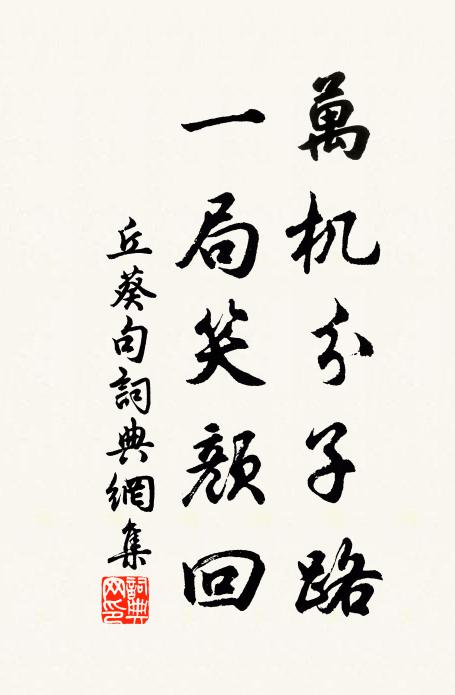 萬机分子路
一局笑顏回
丘葵句詞典網集
詞典网印